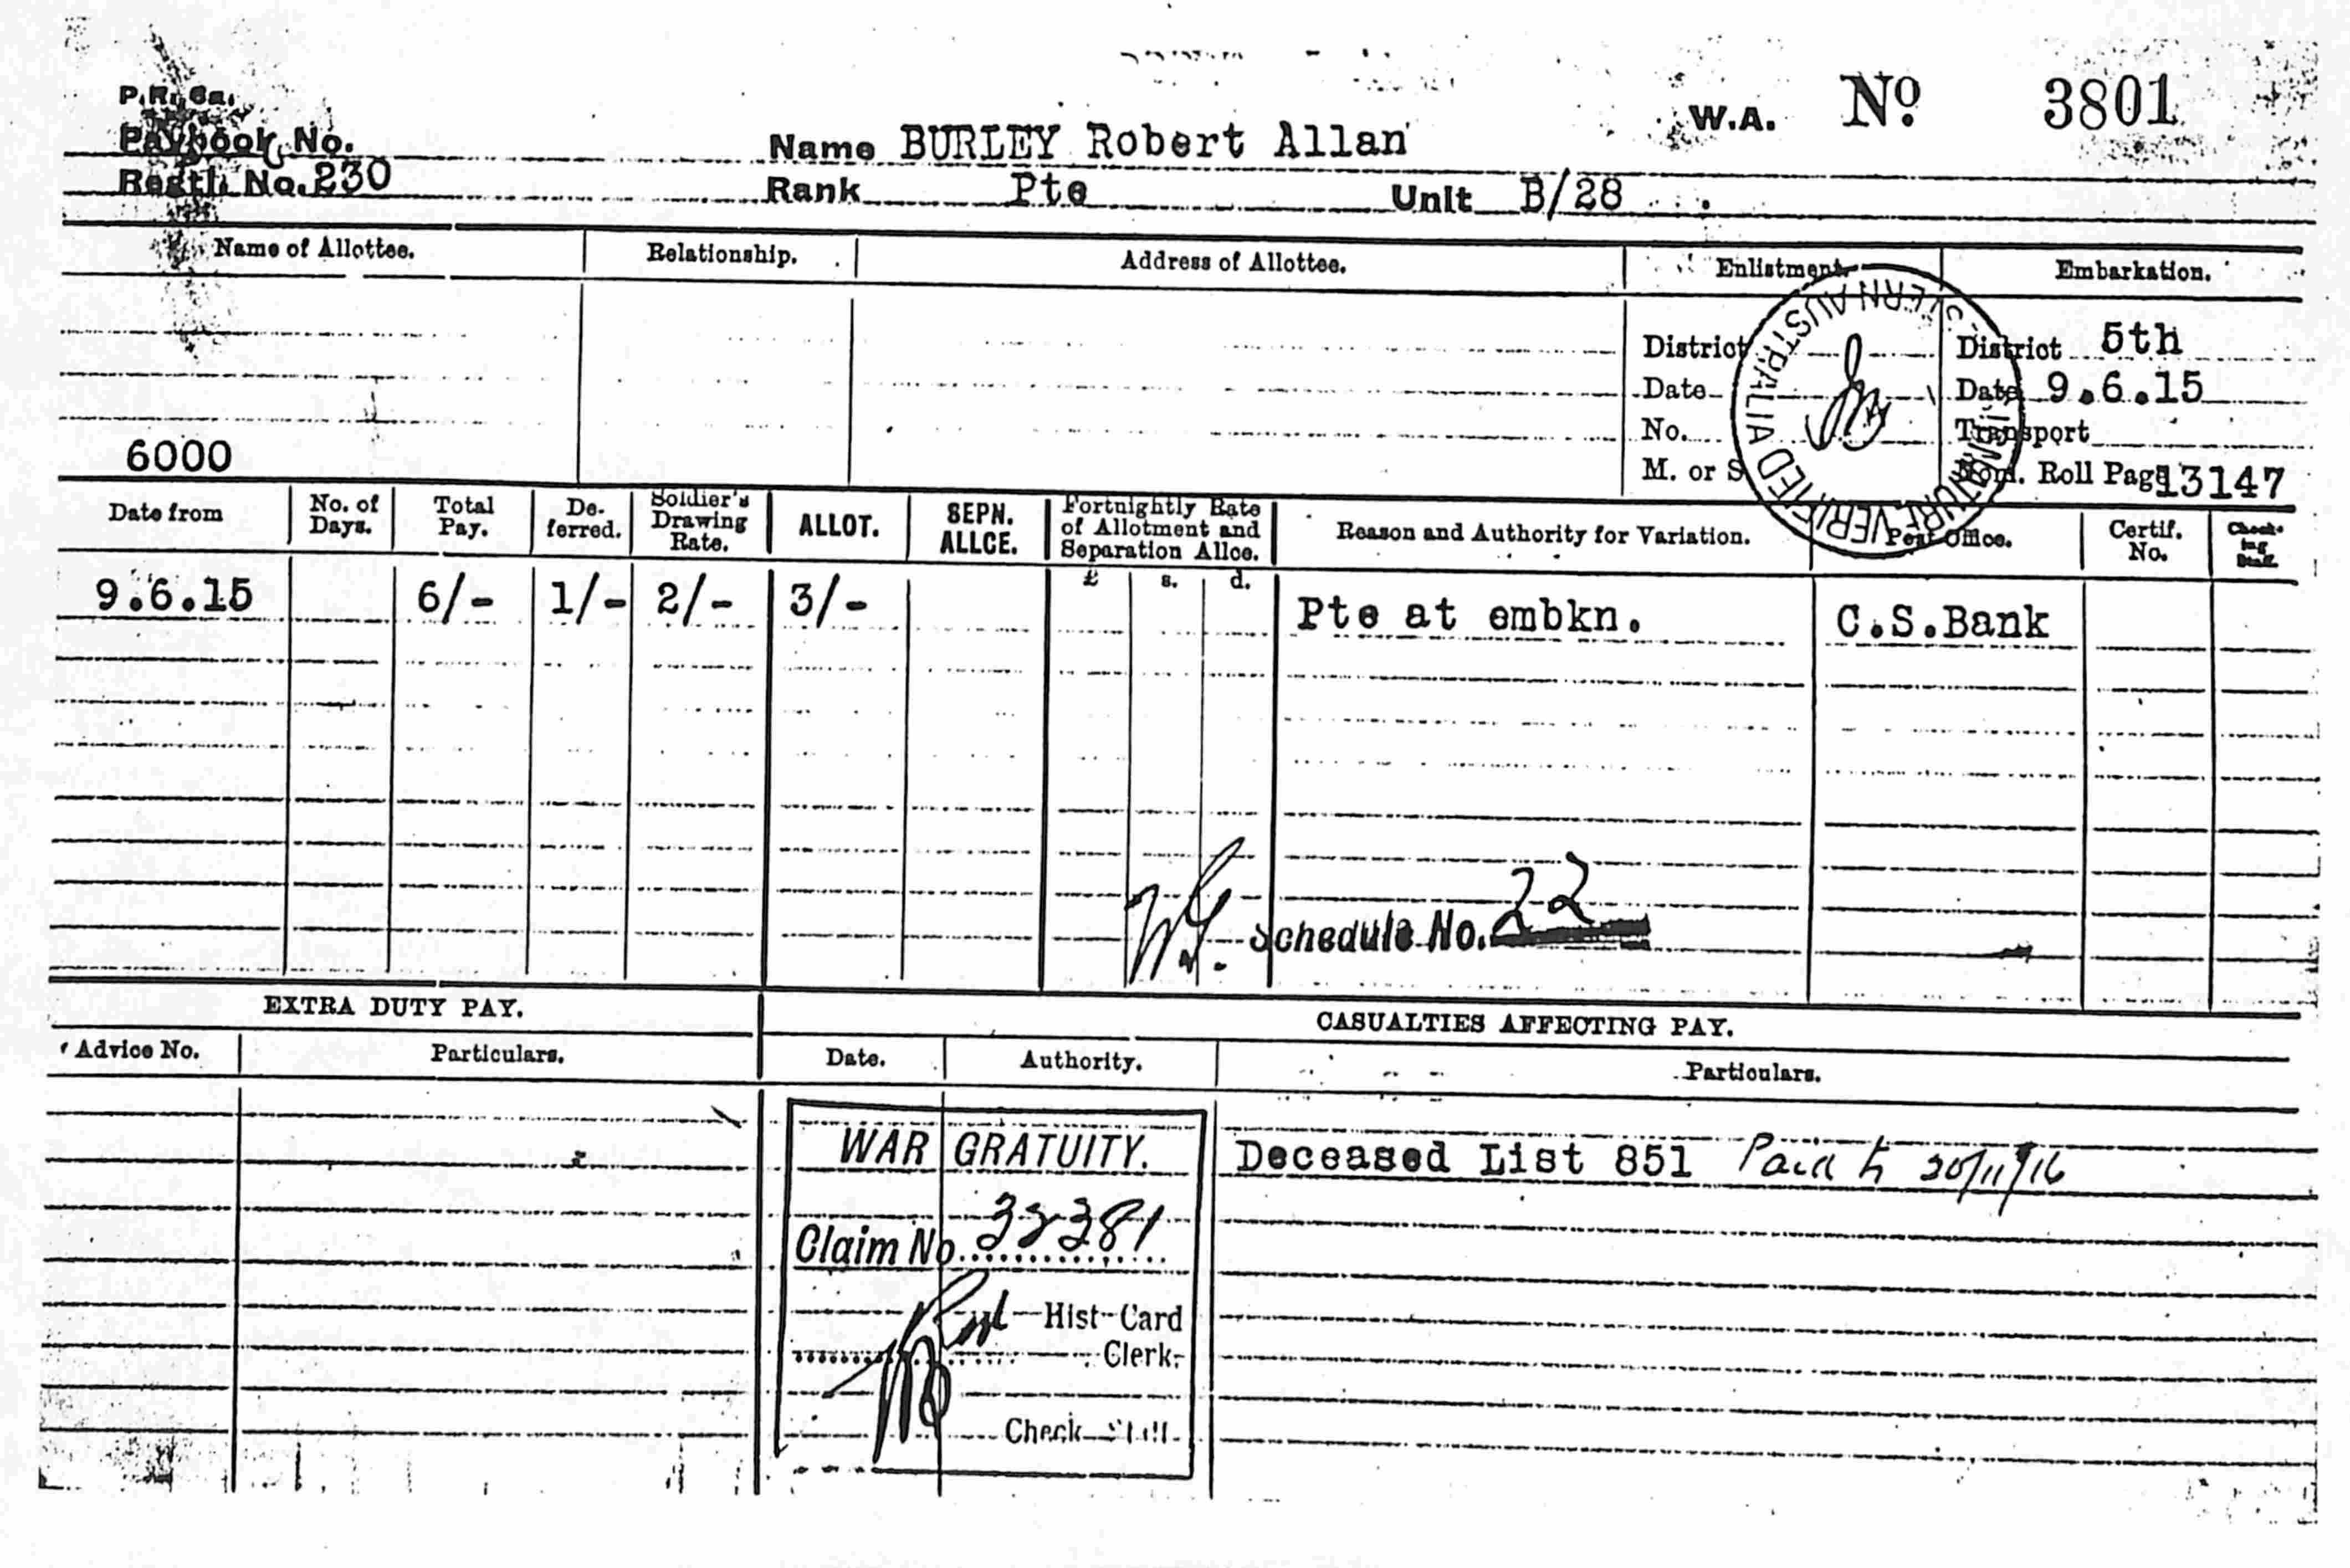 P.R. 6a.
W.A. No 3801
Paybook No.
Name BURLEY Robert Allan
Regtl. No. 230
Rank Pte Unit B/28
Name of Allottee. Relationship. Address of Allottee. Enlistment. Embarkation.
District District 5th
Date Date 9.6.15
No. Transport
6000
M. or S Nom. Roll Page 13147
VERIFIED
AUSTRALIA
Date from No. of Days. Total Pay. De-ferred. Soldier's Drawing Rate. ALLOT. SEPN. ALLCE. Fortnightly Rate of Allotment and Separation Allce. Reason and Authority for Variation. Post Office. Certif. No. Check-ing Staff.
£ s. d.
9.6.15 6/- 1/- 2/- 3/- Pte at embkn. C.S.Bank
Schedule No. 22
EXTRA DUTY PAY. CASUALTIES AFFECTING PAY.
Advice No. Particulars. Date. Authority. Particulars.
WAR GRATUITY. Deceased List 851 Paid to 30/11/16
Claim No.
Hist Card
Clerk.
Check Staff